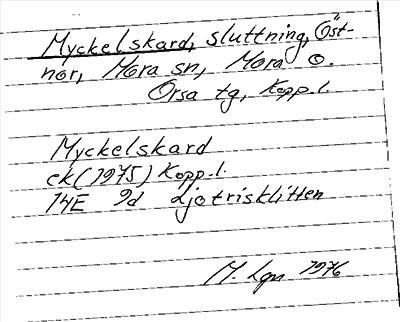 Myckelskard, sluttning, Öst-
nor, Mora sn, Mora o.
Orsa tg, Kopp.l.
Myckelskard
ek (1975) Kopp.l.
14E 9d Ljotrisklitten
M. Lgn 1976